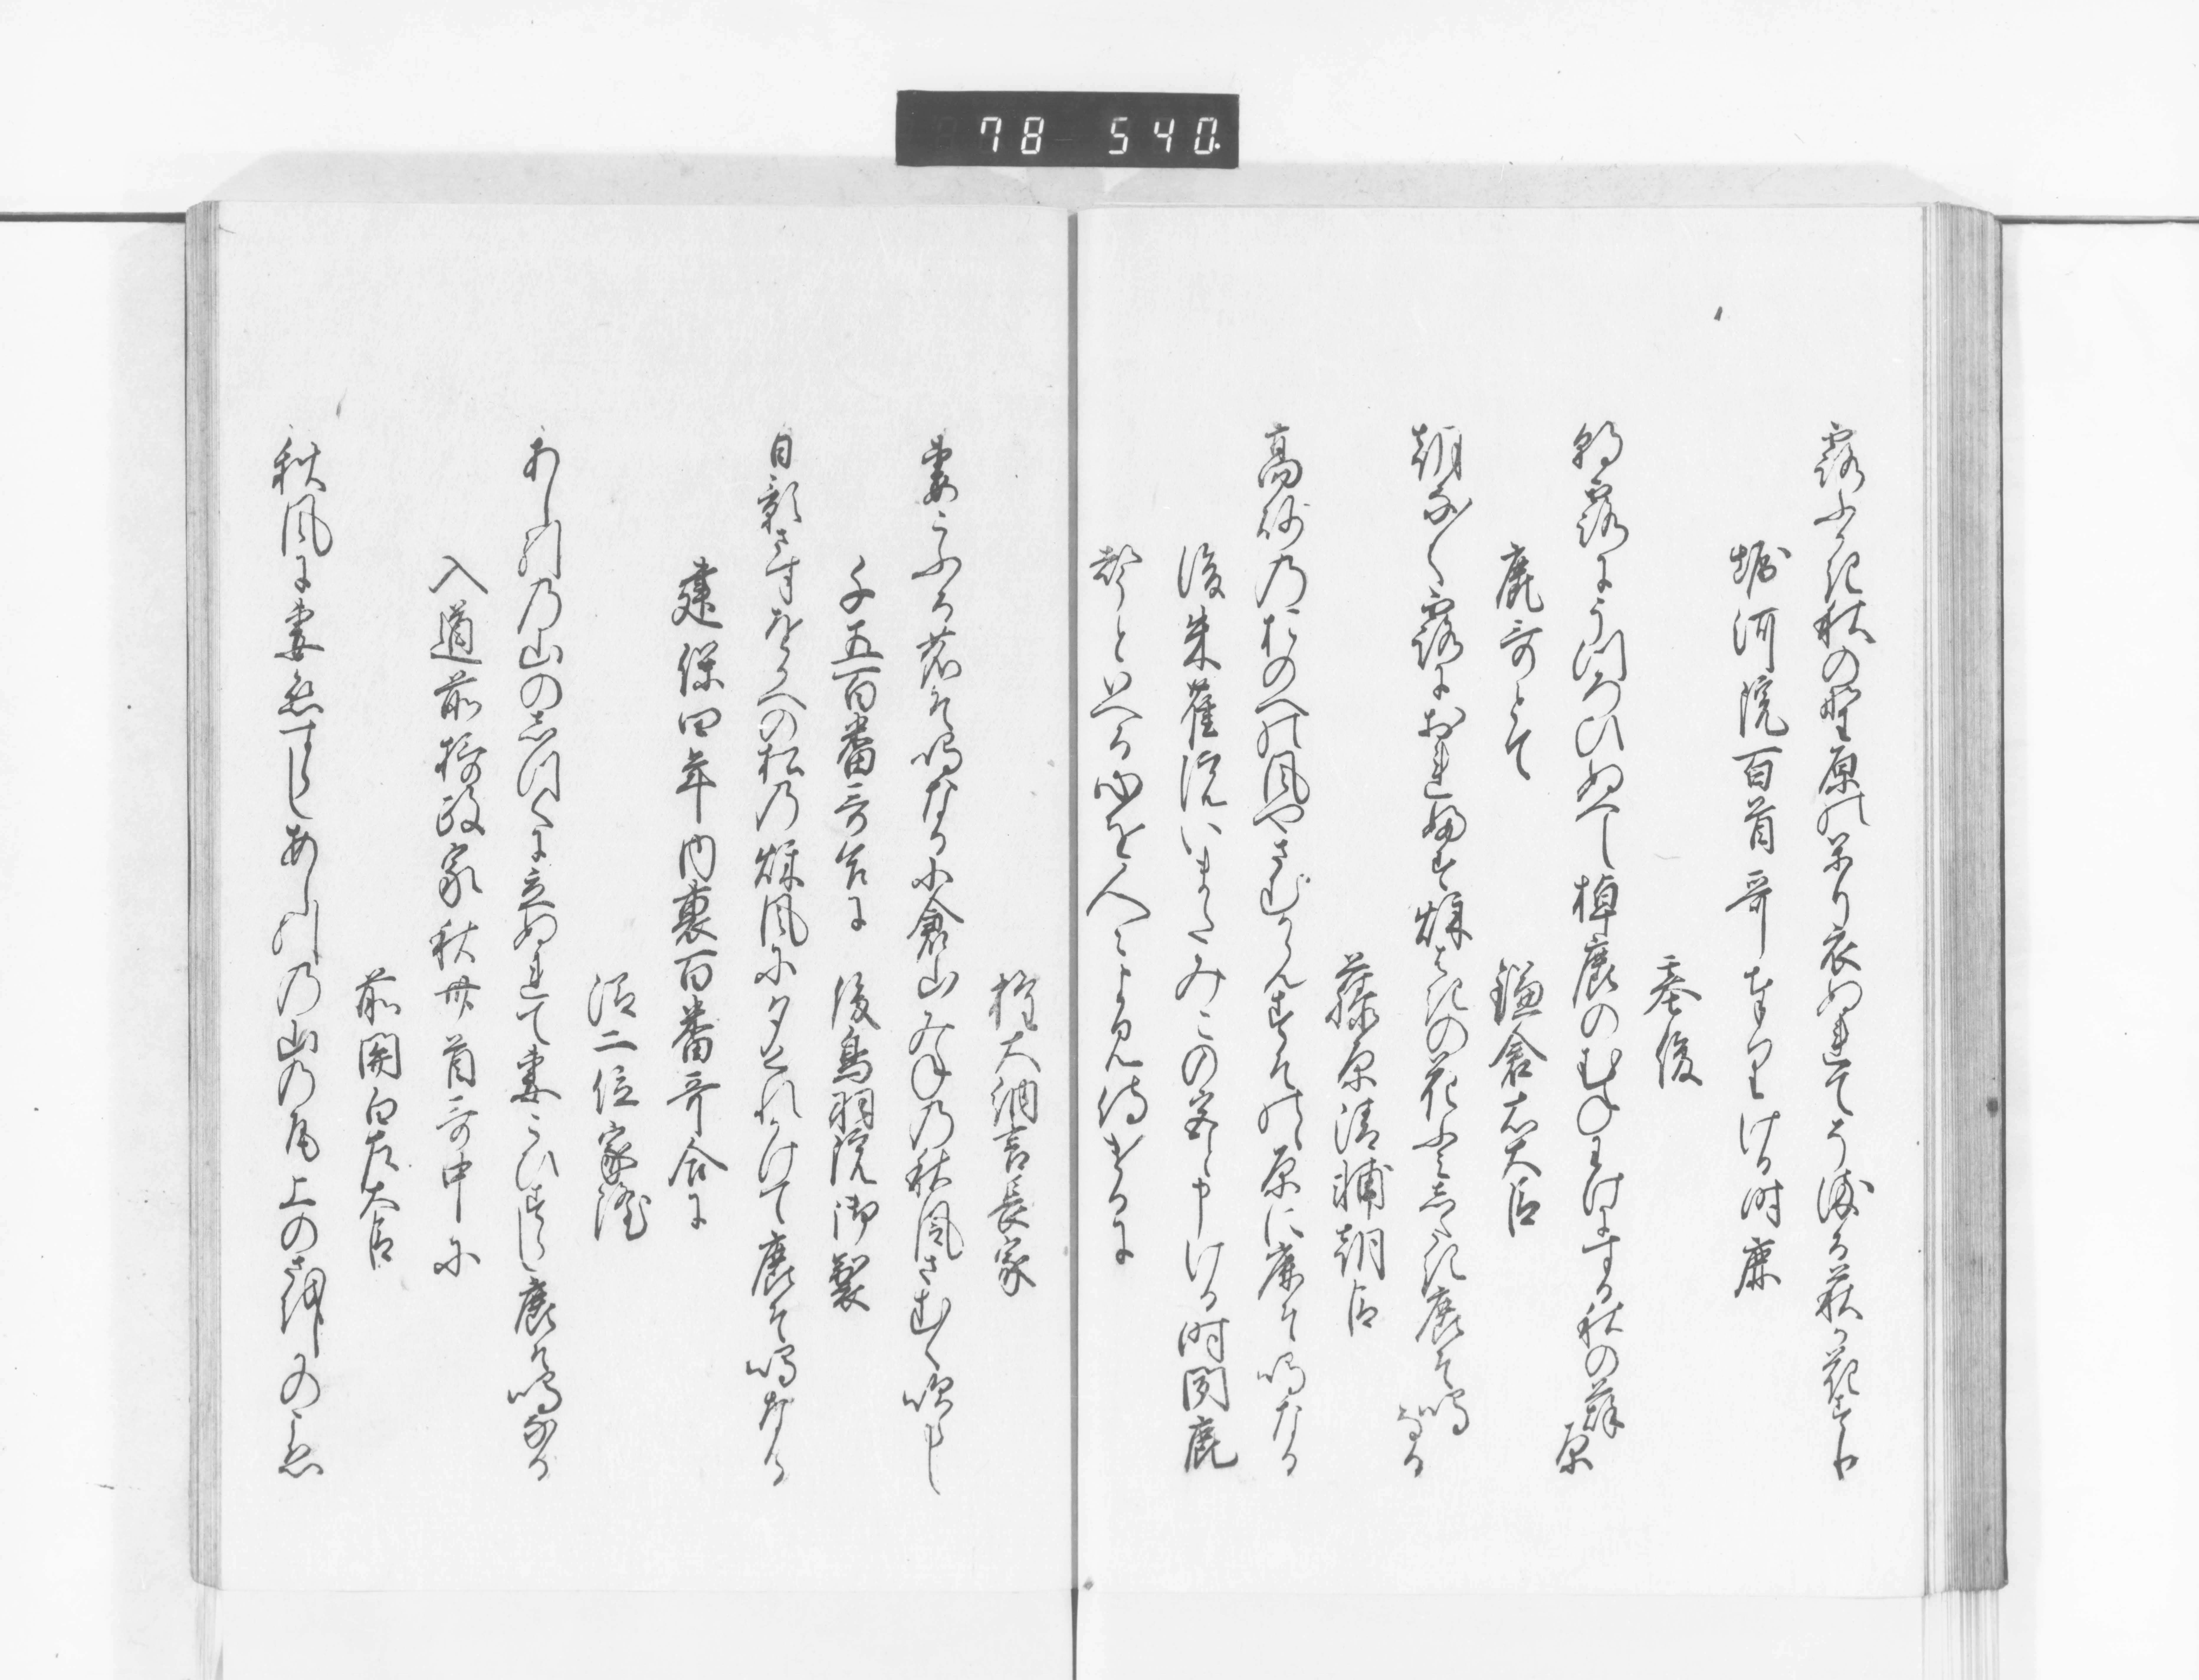 78 540
露ふかき秋の野原のかり衣ぬれてうつる萩か花すり
堀河院百首哥奉りける時鹿
基俊
朝露にうつろひぬへし棹鹿のむねわけにする秋の萩原
鹿哥とて
鎌倉右大臣
朝な〱露におれふす秋はきの花ふみしたき鹿そ鳴なる
藤原清輔朝臣
高砂の尾のへの風やさむからんすその原に鹿そ鳴なる
後朱雀院いまたみこの宮と申ける時聞鹿
声といへる心を人〻よみ侍けるに
権大納言長家
妻こふる鹿そ鳴なる小倉山みねの秋風さむく吹らし
千五百番哥合に
後鳥羽院御製
日影さすをかへの松の秋風に夕くれかけて鹿そ鳴なる
建保四年内裏百番哥合に
従二位家隆
あし引の山のしつくに立ぬれて妻こひすらし鹿そ鳴なる
入道前摂政家秋卅首哥中に
前関白左大臣
秋風に妻恋すらしあし引の山の尾上のさをしかのこゑ